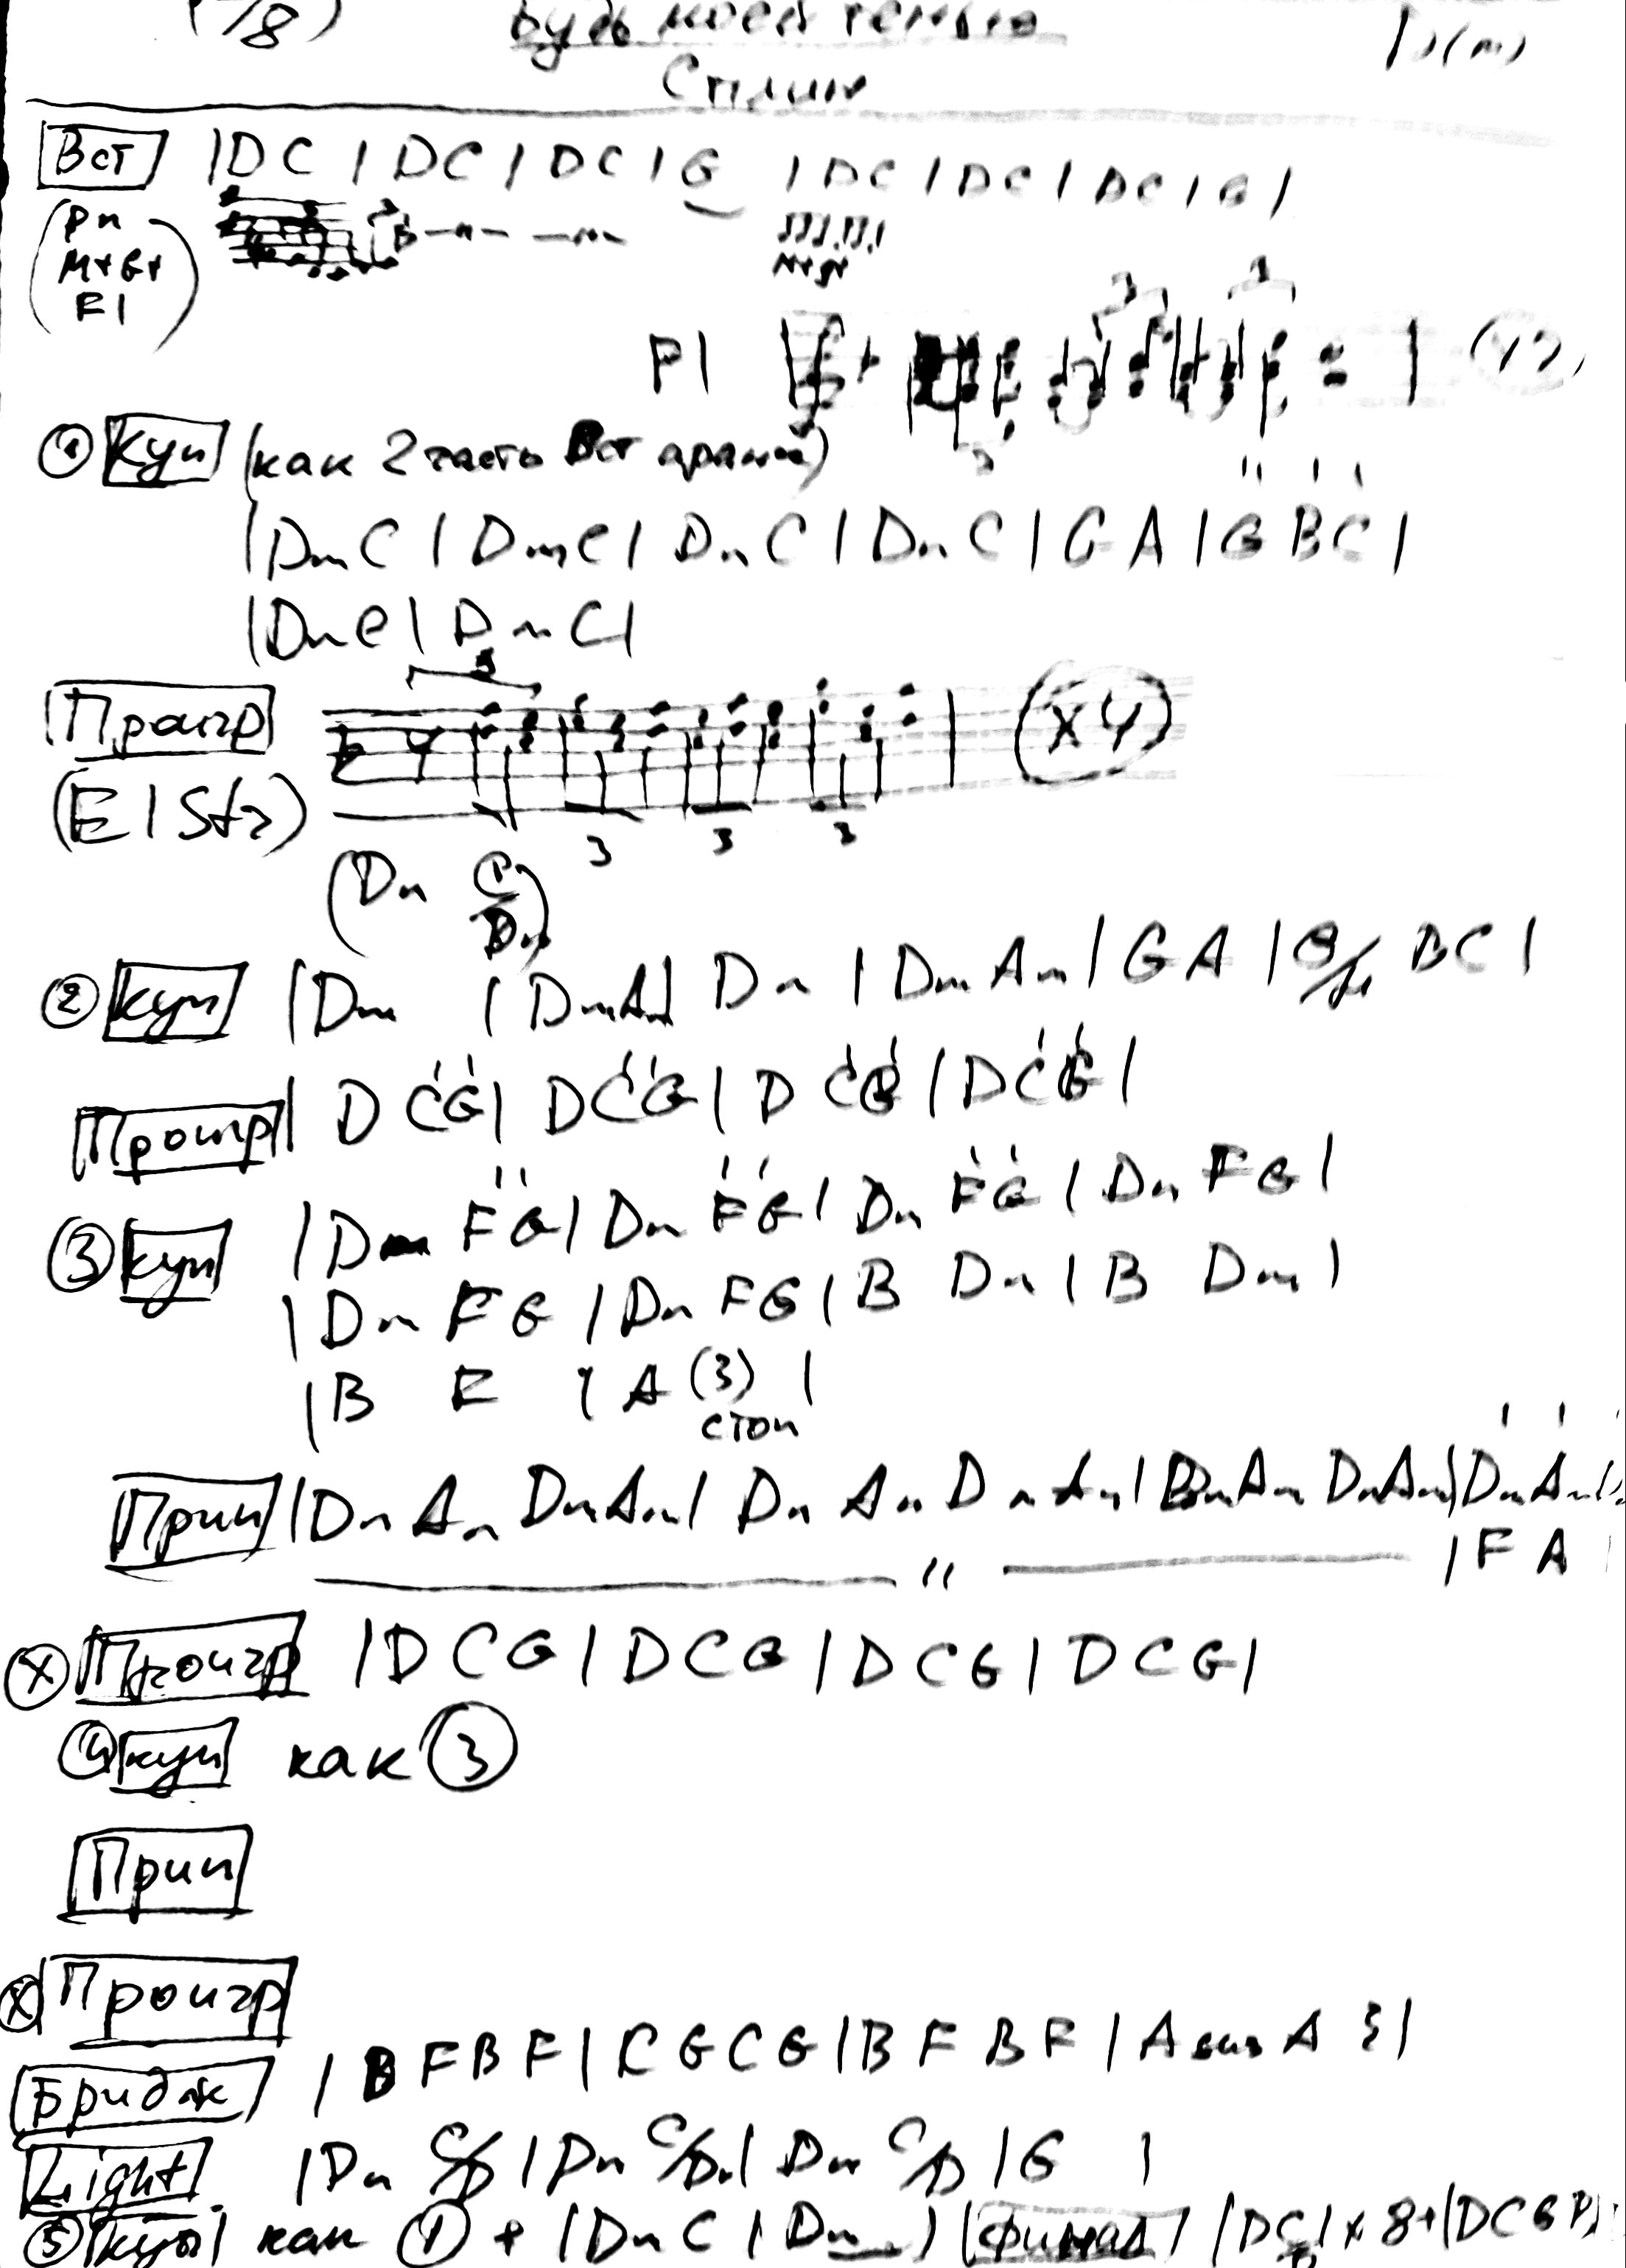 Будь моей тенью
Сплин
Вст |DC|DC|DC|G |DC|DC|DC|G|
(Pn
M+G+
Fl)
Fl
① Куп (как 2 часть Вст
|DmC|DmC|DmC|DmC|GA|GBC|
|DmC|DmC|
Проигр (x4)
3 3 3
(Dm C/Dm)
② Куп |Dm |DmAm| Dm |DmAm|GA| BC|
Проигр| D CG|DCG|D CG|DCG|
③ Куп |Dm FG|Dm FG|Dm FG|Dm FG|
|Dm F G|Dm FG|B Dm|B Dm|
|B F | A (3) |
стоп
Прип |Dm Am DmAm|Dm Am Dm Am|DmAm DmAm|DmAm
〃 |F A
Ⓧ Проигр |D C G|DCG|DCG|DCG|
④ куп как ③
Прип
Ⓧ Проигр
Бридж |B F B F|C G C G|B F B F|A
Light |Dm C/D|Dm C/Dm|Dm C/D|G |
⑤ куп как ① + |Dm C|Dm |Финал |DC|x8+|DCG